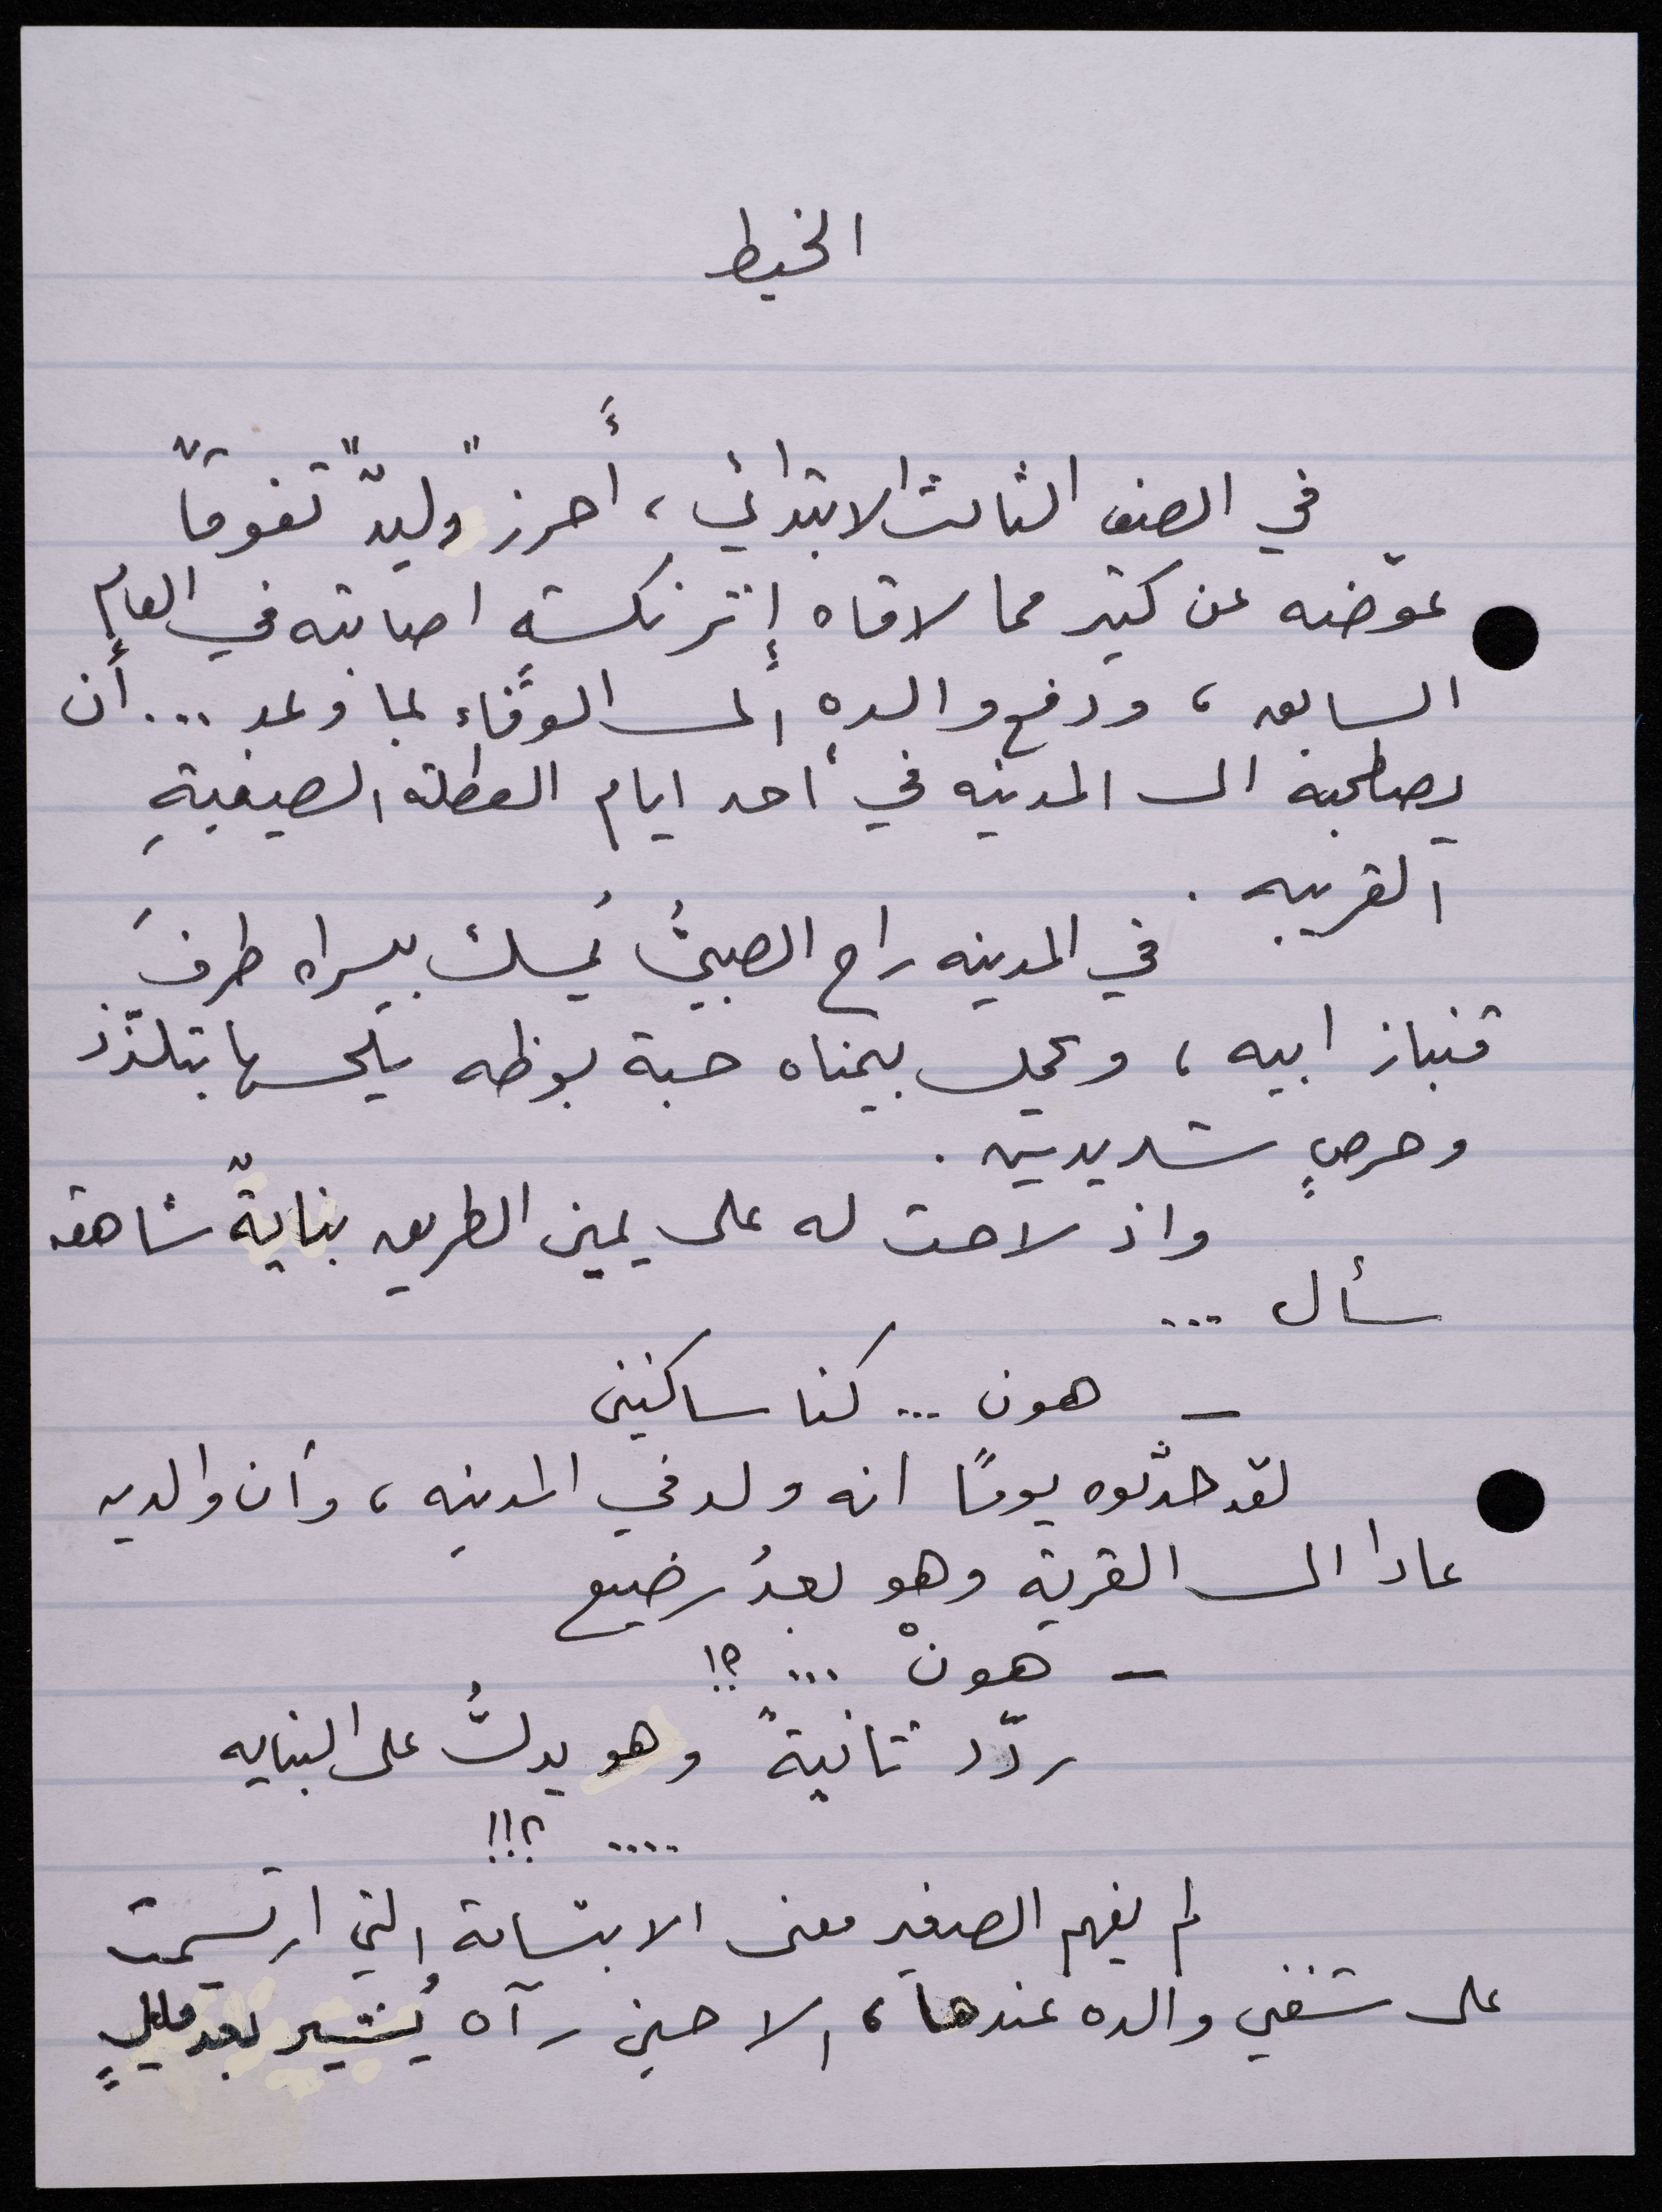 الخيط
في الصف الثالث الابتدائي، أَحرز "وليدٌ" تفوقاً
عوّضه عن كثير مما لاقاه إثر نكسةٍ اصابته في العامِ
السابق، ودفع والده إلى الوَفاء بما وعد ... أن
يصطحبه الى المدينه في أحد ايام العطلة الصيفيةِ
القريبه.
في المدينه راح الصبيُّ يُمسك بيسراه طرفَ
قنباز ابيه، ويحمل بيمناه حبة بوظه يلحسها بتلذّذ
وحرصٍ شديدين.
واذ لاحت له على يمين الطريق بنايةٌ شاهقه
سأل ...
– هون ... كنا ساكنين
لقد حدّثوه يومًا انه ولد في المدينه، وأن والديه
عادا الى القرية وهو بعدُ رضيع
– هونْ ... ؟!
ردّد ثانيةً وهو يدلُّ على البنايه
.... ؟!!
لم يفهم الصغير معنى الابتسامة التي ارتسمت
على شفتي والده عندها، الا حين رآه يُشير بعد قليلٍ